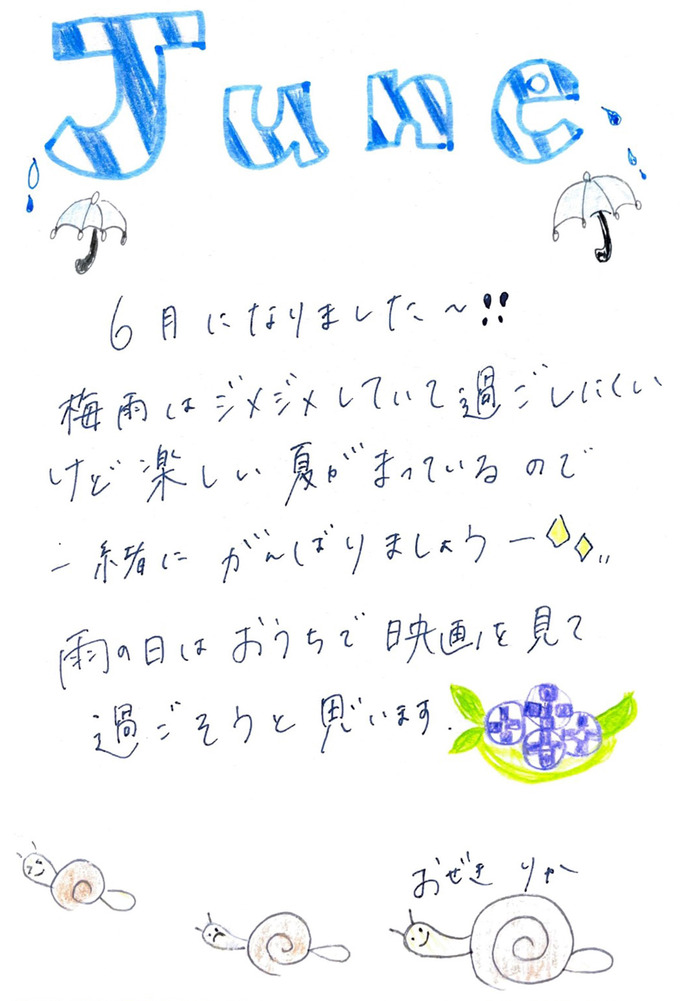 June
6月になりました〜!!
梅雨はジメジメしていて過ごしにくい
けど楽しい夏がまっているので
一緒にがんばりましょうー
雨の日はおうちで映画を見て
過ごそうと思います.
おぜき りか